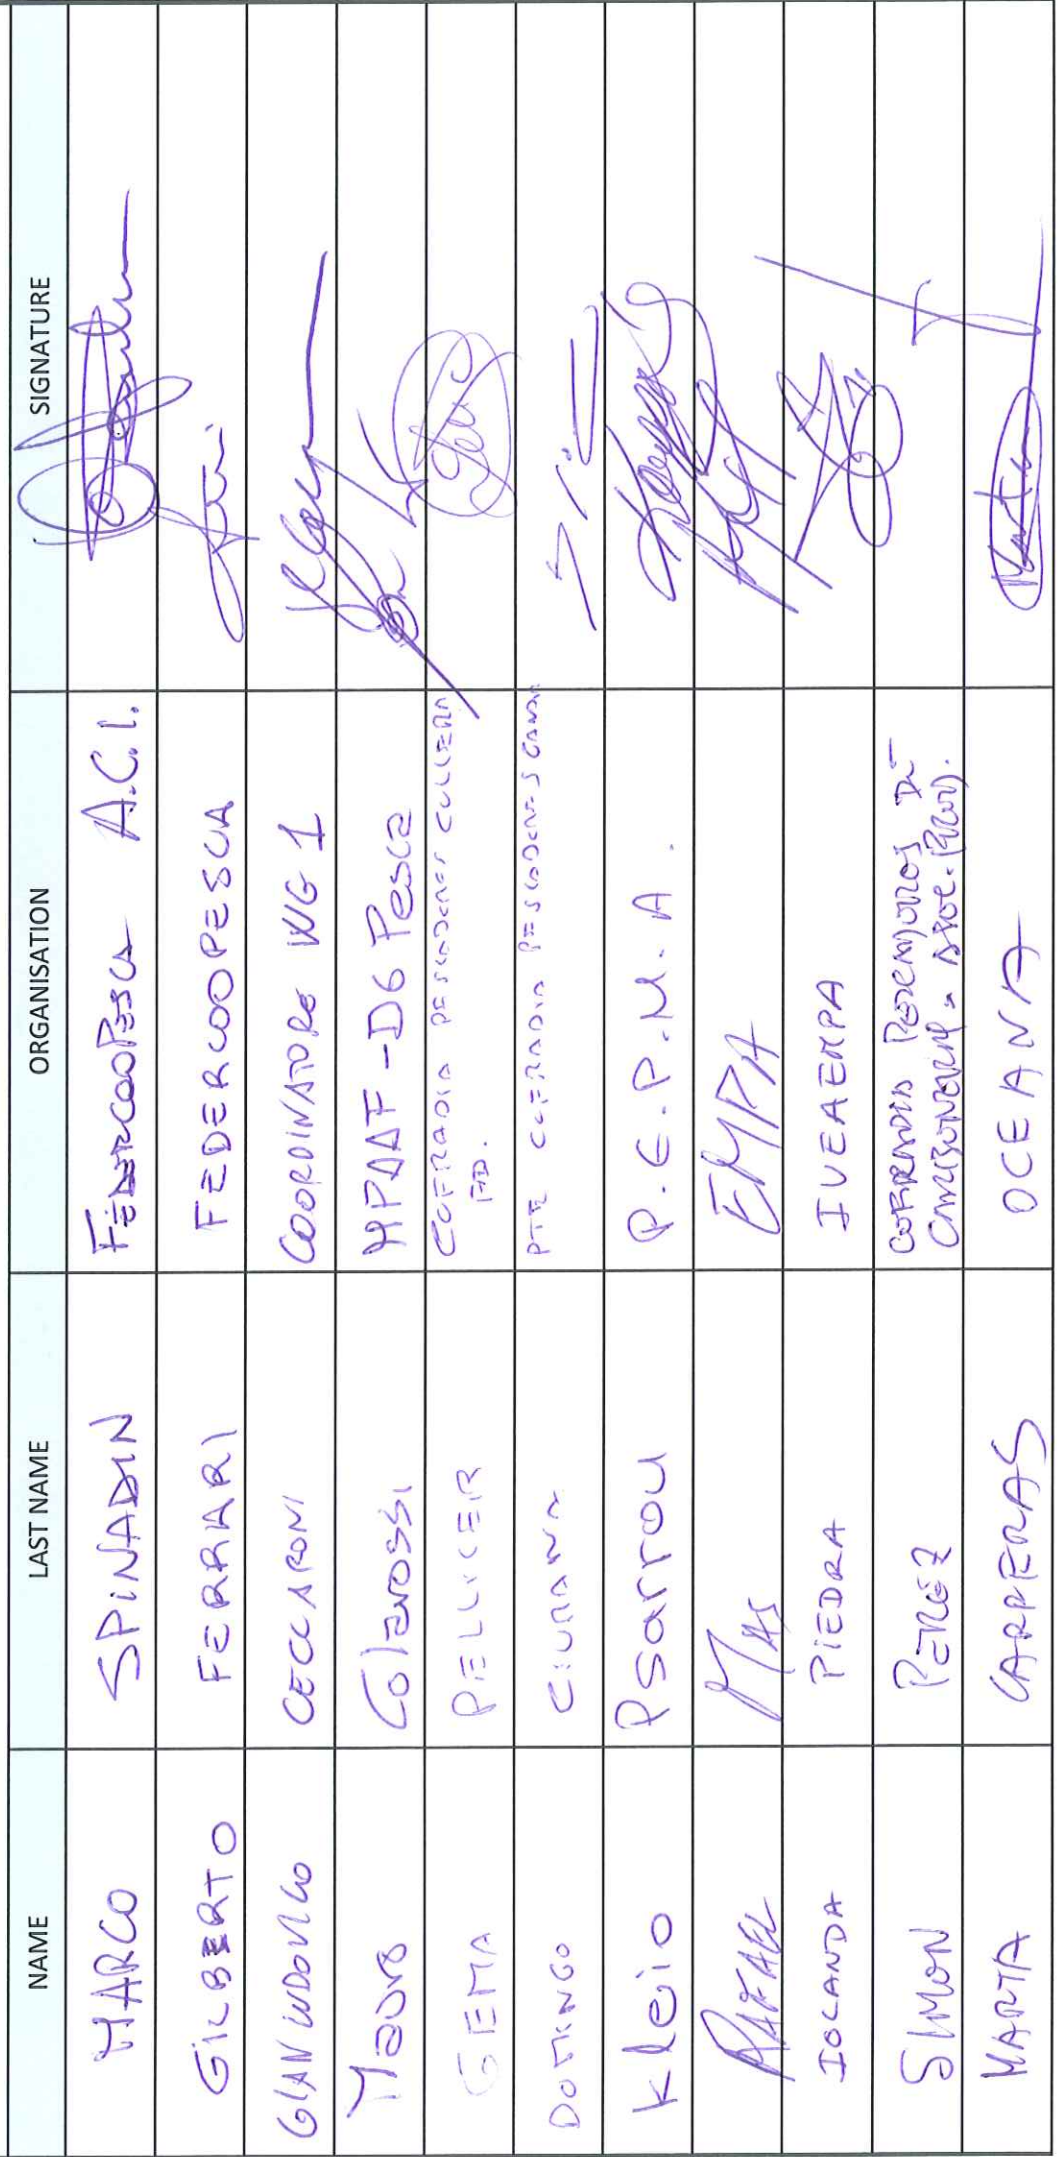 NAME LAST NAME ORGANISATION SIGNATURE
MARCO SPINADIN FEDERCOOPESCA A.C.I.
GILBERTO FERRARI FEDERCOOPESCA
GIANLUDOVICO CECCARONI COORDINATORE WG 1
Mauro Colarossi MPAAF - DG Pesca
GEMA PELLICER COFRADIA PESCADORES CULLERA
DOMINGO CIURANA PTE COFRADIA PESCADORES
Kleio Psarrou P.E.P.M.A.
RAFAEL MAS EMPA
IOLANDA PIEDRA IVEAEMPA
SIMON PEREZ COFRADIA PESCADORES DE
MARTA CARRERAS OCEANA